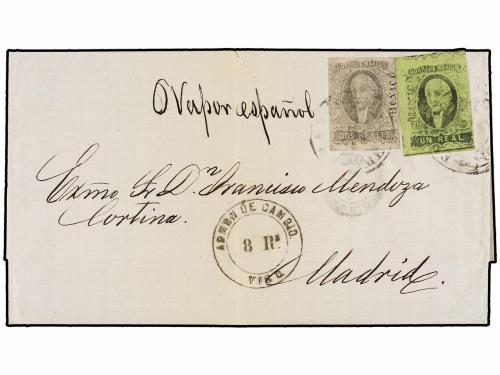 CORREOS MEJICO
DOS REALES
Mexico
CORREOS MEJICO
UN REAL
Vapor español
Exmo. Sr. Dn. Francisco Mendoza
Cortina.
ADMON DE CAMBIO
8 Rs
VIGO
Madrid.